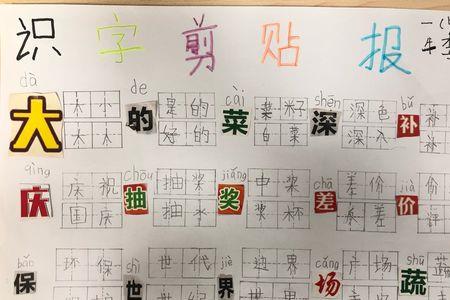 识 字 剪 贴 报
dà de cài shēn bǔ
大 小 是 的 菜 深 色 补
大 的 菜 深 补
好 的 白 菜 深 补
qìng chōu jiǎng chā jià
庆 祝 抽 奖 中 奖 差 价 价
庆 抽 奖 差 价
国 庆 抽 水 奖 杯 差 评
bǎo shì jiè cǎng shū
环 保 世 代 边 界 广 场 蔬
保 世 界 场 蔬